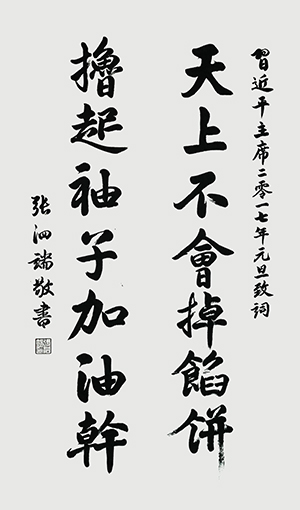 習近平主席二零一七年元旦致詞
天上不會掉餡餅
擼起袖子加油幹
张泗端敬書